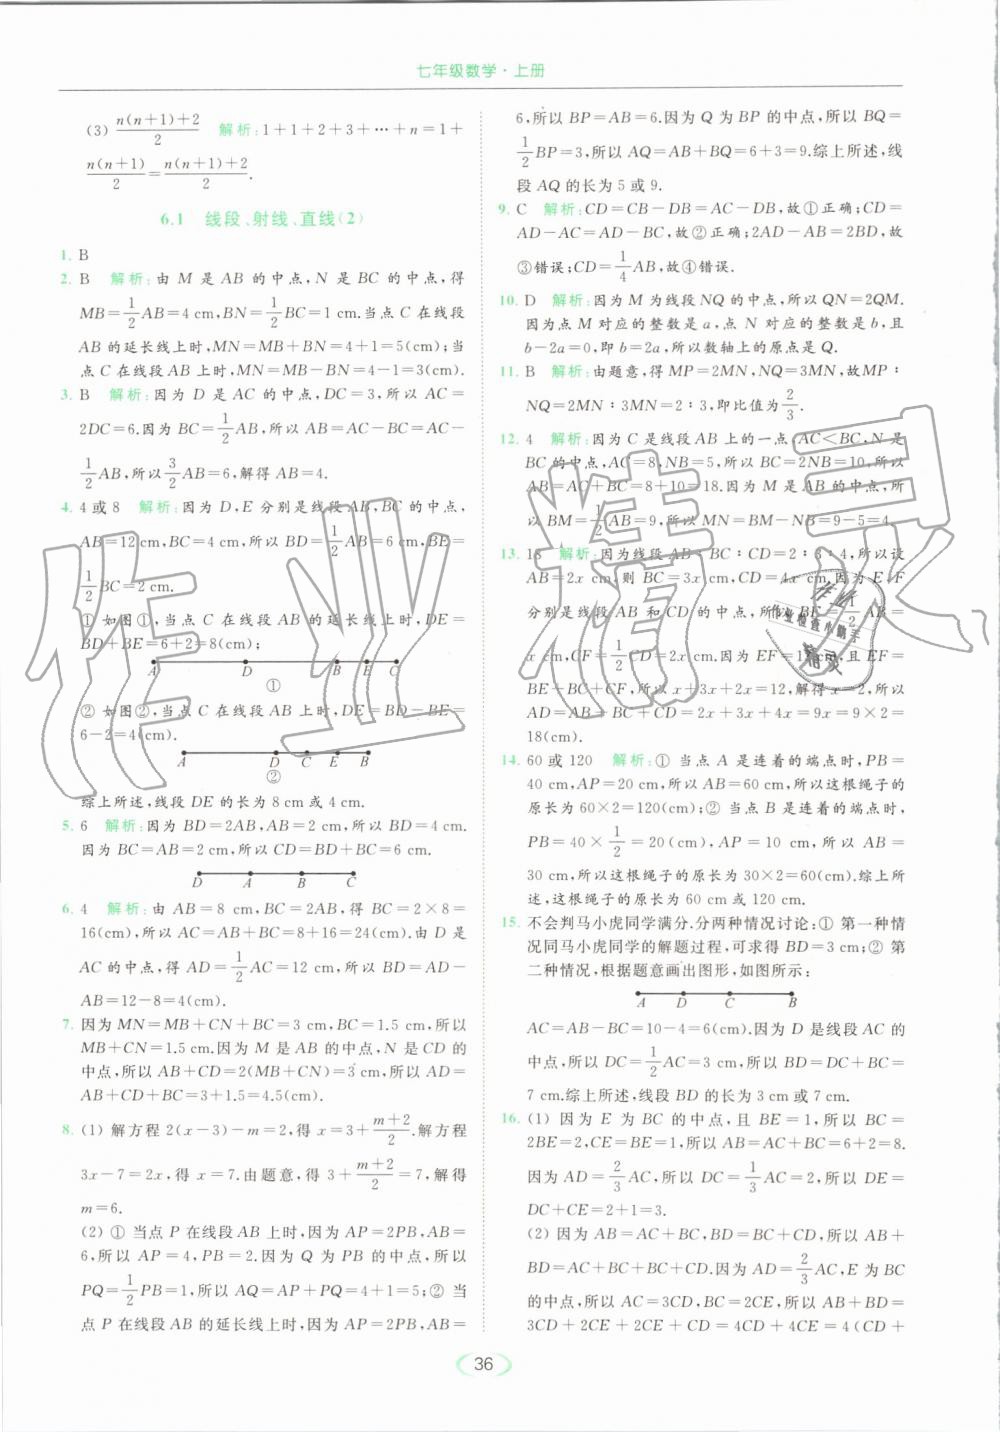 七年级数学·上册
(3) \frac{n(n+1)+2}{2} 解析:1+1+2+3+…+n=1+
\frac{n(n+1)}{2}=\frac{n(n+1)+2}{2}.
6.1 线段、射线、直线(2)
1. B
2. B 解析:由 M 是 AB 的中点,N 是 BC 的中点,得
MB=\frac{1}{2}AB=4 cm,BN=\frac{1}{2}BC=1 cm.当点 C 在线段
AB 的延长线上时,MN=MB+BN=4+1=5(cm);当
点 C 在线段 AB 上时,MN=MB-BN=4-1=3(cm).
3. B 解析:因为 D 是 AC 的中点,DC=3,所以 AC=
2DC=6.因为 BC=\frac{1}{2}AB,所以 AB=AC-BC=AC-
\frac{1}{2}AB,所以\frac{3}{2}AB=6,解得 AB=4.
4. 4 或 8 解析:因为 D,E 分别是线段 AB,BC 的中点,
AB=12 cm,BC=4 cm,所以 BD=\frac{1}{2}AB=6 cm,BE=
\frac{1}{2}BC=2 cm.
① 如图①,当点 C 在线段 AB 的延长线上时,DE=
BD+BE=6+2=8(cm);
A D B E C
①
② 如图②,当点 C 在线段 AB 上时,DE=BD-BE=
6-2=4(cm).
A D C E B
②
综上所述,线段 DE 的长为 8 cm 或 4 cm.
5. 6 解析:因为 BD=2AB,AB=2 cm,所以 BD=4 cm.
因为 BC=AB=2 cm,所以 CD=BD+BC=6 cm.
D A B C
6. 4 解析:由 AB=8 cm,BC=2AB,得 BC=2×8=
16(cm),所以 AC=AB+BC=8+16=24(cm).由 D 是
AC 的中点,得 AD=\frac{1}{2}AC=12 cm,所以 BD=AD-
AB=12-8=4(cm).
7. 因为 MN=MB+CN+BC=3 cm,BC=1.5 cm,所以
MB+CN=1.5 cm.因为 M 是 AB 的中点,N 是 CD 的
中点,所以 AB+CD=2(MB+CN)=3 cm,所以 AD=
AB+CD+BC=3+1.5=4.5(cm).
8. (1) 解方程 2(x-3)-m=2,得 x=3+\frac{m+2}{2}.解方程
3x-7=2x,得 x=7.由题意,得 3+\frac{m+2}{2}=7,解得
m=6.
(2) ① 当点 P 在线段 AB 上时,因为 AP=2PB,AB=
6,所以 AP=4,PB=2.因为 Q 为 PB 的中点,所以
PQ=\frac{1}{2}PB=1,所以 AQ=AP+PQ=4+1=5;② 当
点 P 在线段 AB 的延长线上时,因为 AP=2PB,AB=
6,所以 BP=AB=6.因为 Q 为 BP 的中点,所以 BQ=
\frac{1}{2}BP=3,所以 AQ=AB+BQ=6+3=9.综上所述,线
段 AQ 的长为 5 或 9.
9. C 解析:CD=CB-DB=AC-DB,故①正确;CD=
AD-AC=AD-BC,故②正确;2AD-AB=2BD,故
③错误;CD=\frac{1}{4}AB,故④错误.
10. D 解析:因为 M 为线段 NQ 的中点,所以 QN=2QM.
因为点 M 对应的整数是 a,点 N 对应的整数是 b,且
b-2a=0,即 b=2a,所以数轴上的原点是 Q.
11. B 解析:由题意,得 MP=2MN,NQ=3MN,故 MP:
NQ=2MN:3MN=2:3,即比值为\frac{2}{3}.
12. 4 解析:因为 C 是线段 AB 上的一点,AC<BC,N 是
BC 的中点,AC=8,NB=5,所以 BC=2NB=10,所以
AB=AC+BC=8+10=18.因为 M 是 AB 的中点,所
以 BM=\frac{1}{2}AB=9,所以 MN=BM-NB=9-5=4.
13. 18 解析:因为线段 AB:BC:CD=2:3:4,所以设
AB=2x cm,则 BC=3x cm,CD=4x cm.因为 E,F
分别是线段 AB 和 CD 的中点,所以 BE=\frac{1}{2}AB=
x cm,CF=\frac{1}{2}CD=2x cm.因为 EF=12 cm,且 EF=
BE+BC+CF,所以 x+3x+2x=12,解得 x=2,所以
AD=AB+BC+CD=2x+3x+4x=9x=9×2=
18(cm).
14. 60 或 120 解析:① 当点 A 是连着的端点时,PB=
40 cm,AP=20 cm,所以 AB=60 cm,所以这根绳子的
原长为 60×2=120(cm);② 当点 B 是连着的端点时,
PB=40×\frac{1}{2}=20(cm),AP=10 cm,所以 AB=
30 cm,所以这根绳子的原长为 30×2=60(cm).综上所
述,这根绳子的原长为 60 cm 或 120 cm.
15. 不会判马小虎同学满分.分两种情况讨论:① 第一种情
况同马小虎同学的解题过程,可求得 BD=3 cm;② 第
二种情况,根据题意画出图形,如图所示:
A D C B
AC=AB-BC=10-4=6(cm).因为 D 是线段 AC 的
中点,所以 DC=\frac{1}{2}AC=3 cm,所以 BD=DC+BC=
7 cm.综上所述,线段 BD 的长为 3 cm 或 7 cm.
16. (1) 因为 E 为 BC 的中点,且 BE=1,所以 BC=
2BE=2,CE=BE=1,所以 AB=AC+BC=6+2=8.
因为 AD=\frac{2}{3}AC,所以 DC=\frac{1}{3}AC=2,所以 DE=
DC+CE=2+1=3.
(2) 因为 AB=AC+BC,BD=BC+CD,所以 AB+
BD=AC+BC+BC+CD.因为 AD=\frac{2}{3}AC,E 为 BC
的中点,所以 AC=3CD,BC=2CE,所以 AB+BD=
3CD+2CE+2CE+CD=4CD+4CE=4(CD+
36
作业精灵
作业检查小助手
精灵